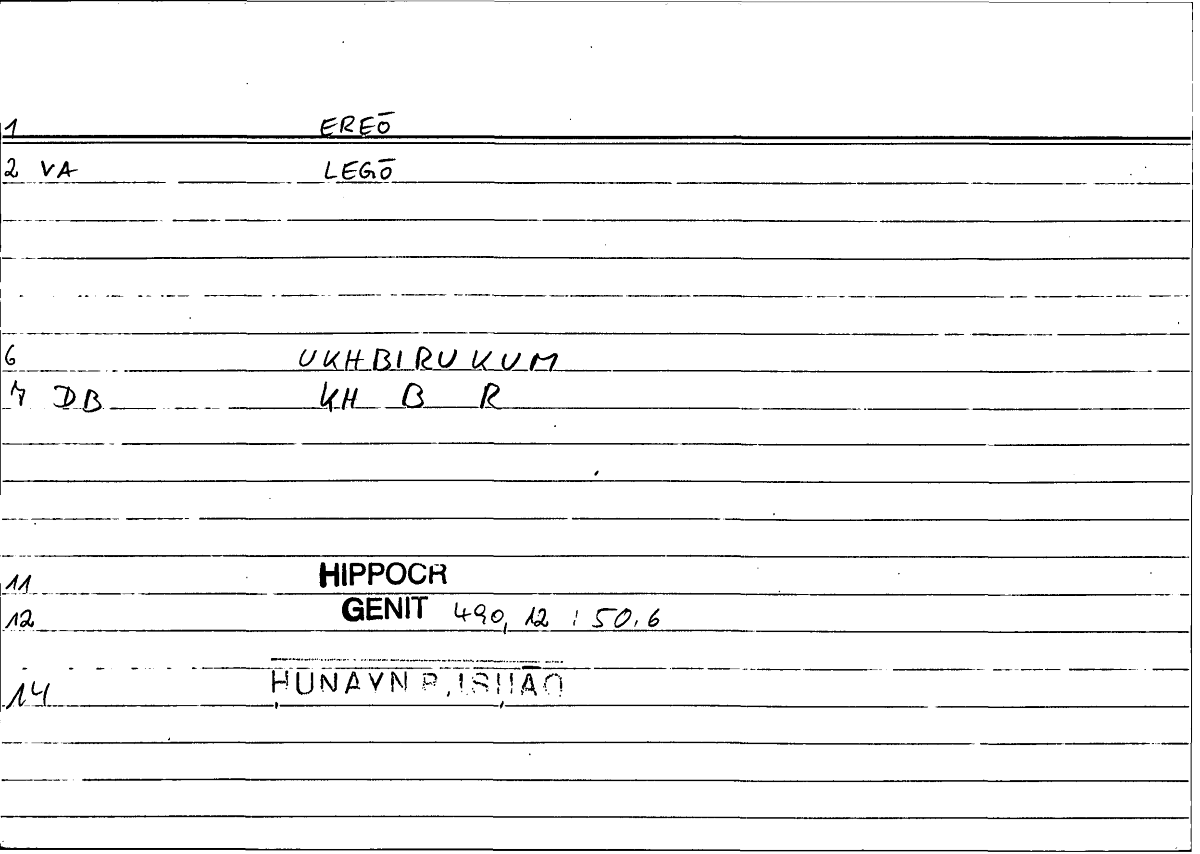 1 EREŌ
2 VA LEGŌ
6 UKHBIRUKUM
7 DB KH B R
11 HIPPOCR
12 GENIT 490, 12 : 50.6
14 ḤUNAYN B. ISḤĀQ